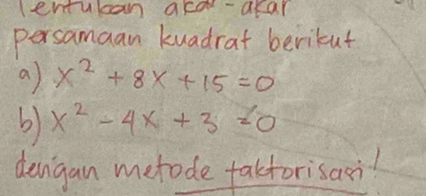 Tentukan akar-akar
persamaan kuadrat berikut
a) x² + 8x + 15 = 0
b) x² - 4x + 3 = 0
dengan metode faktorisasi!